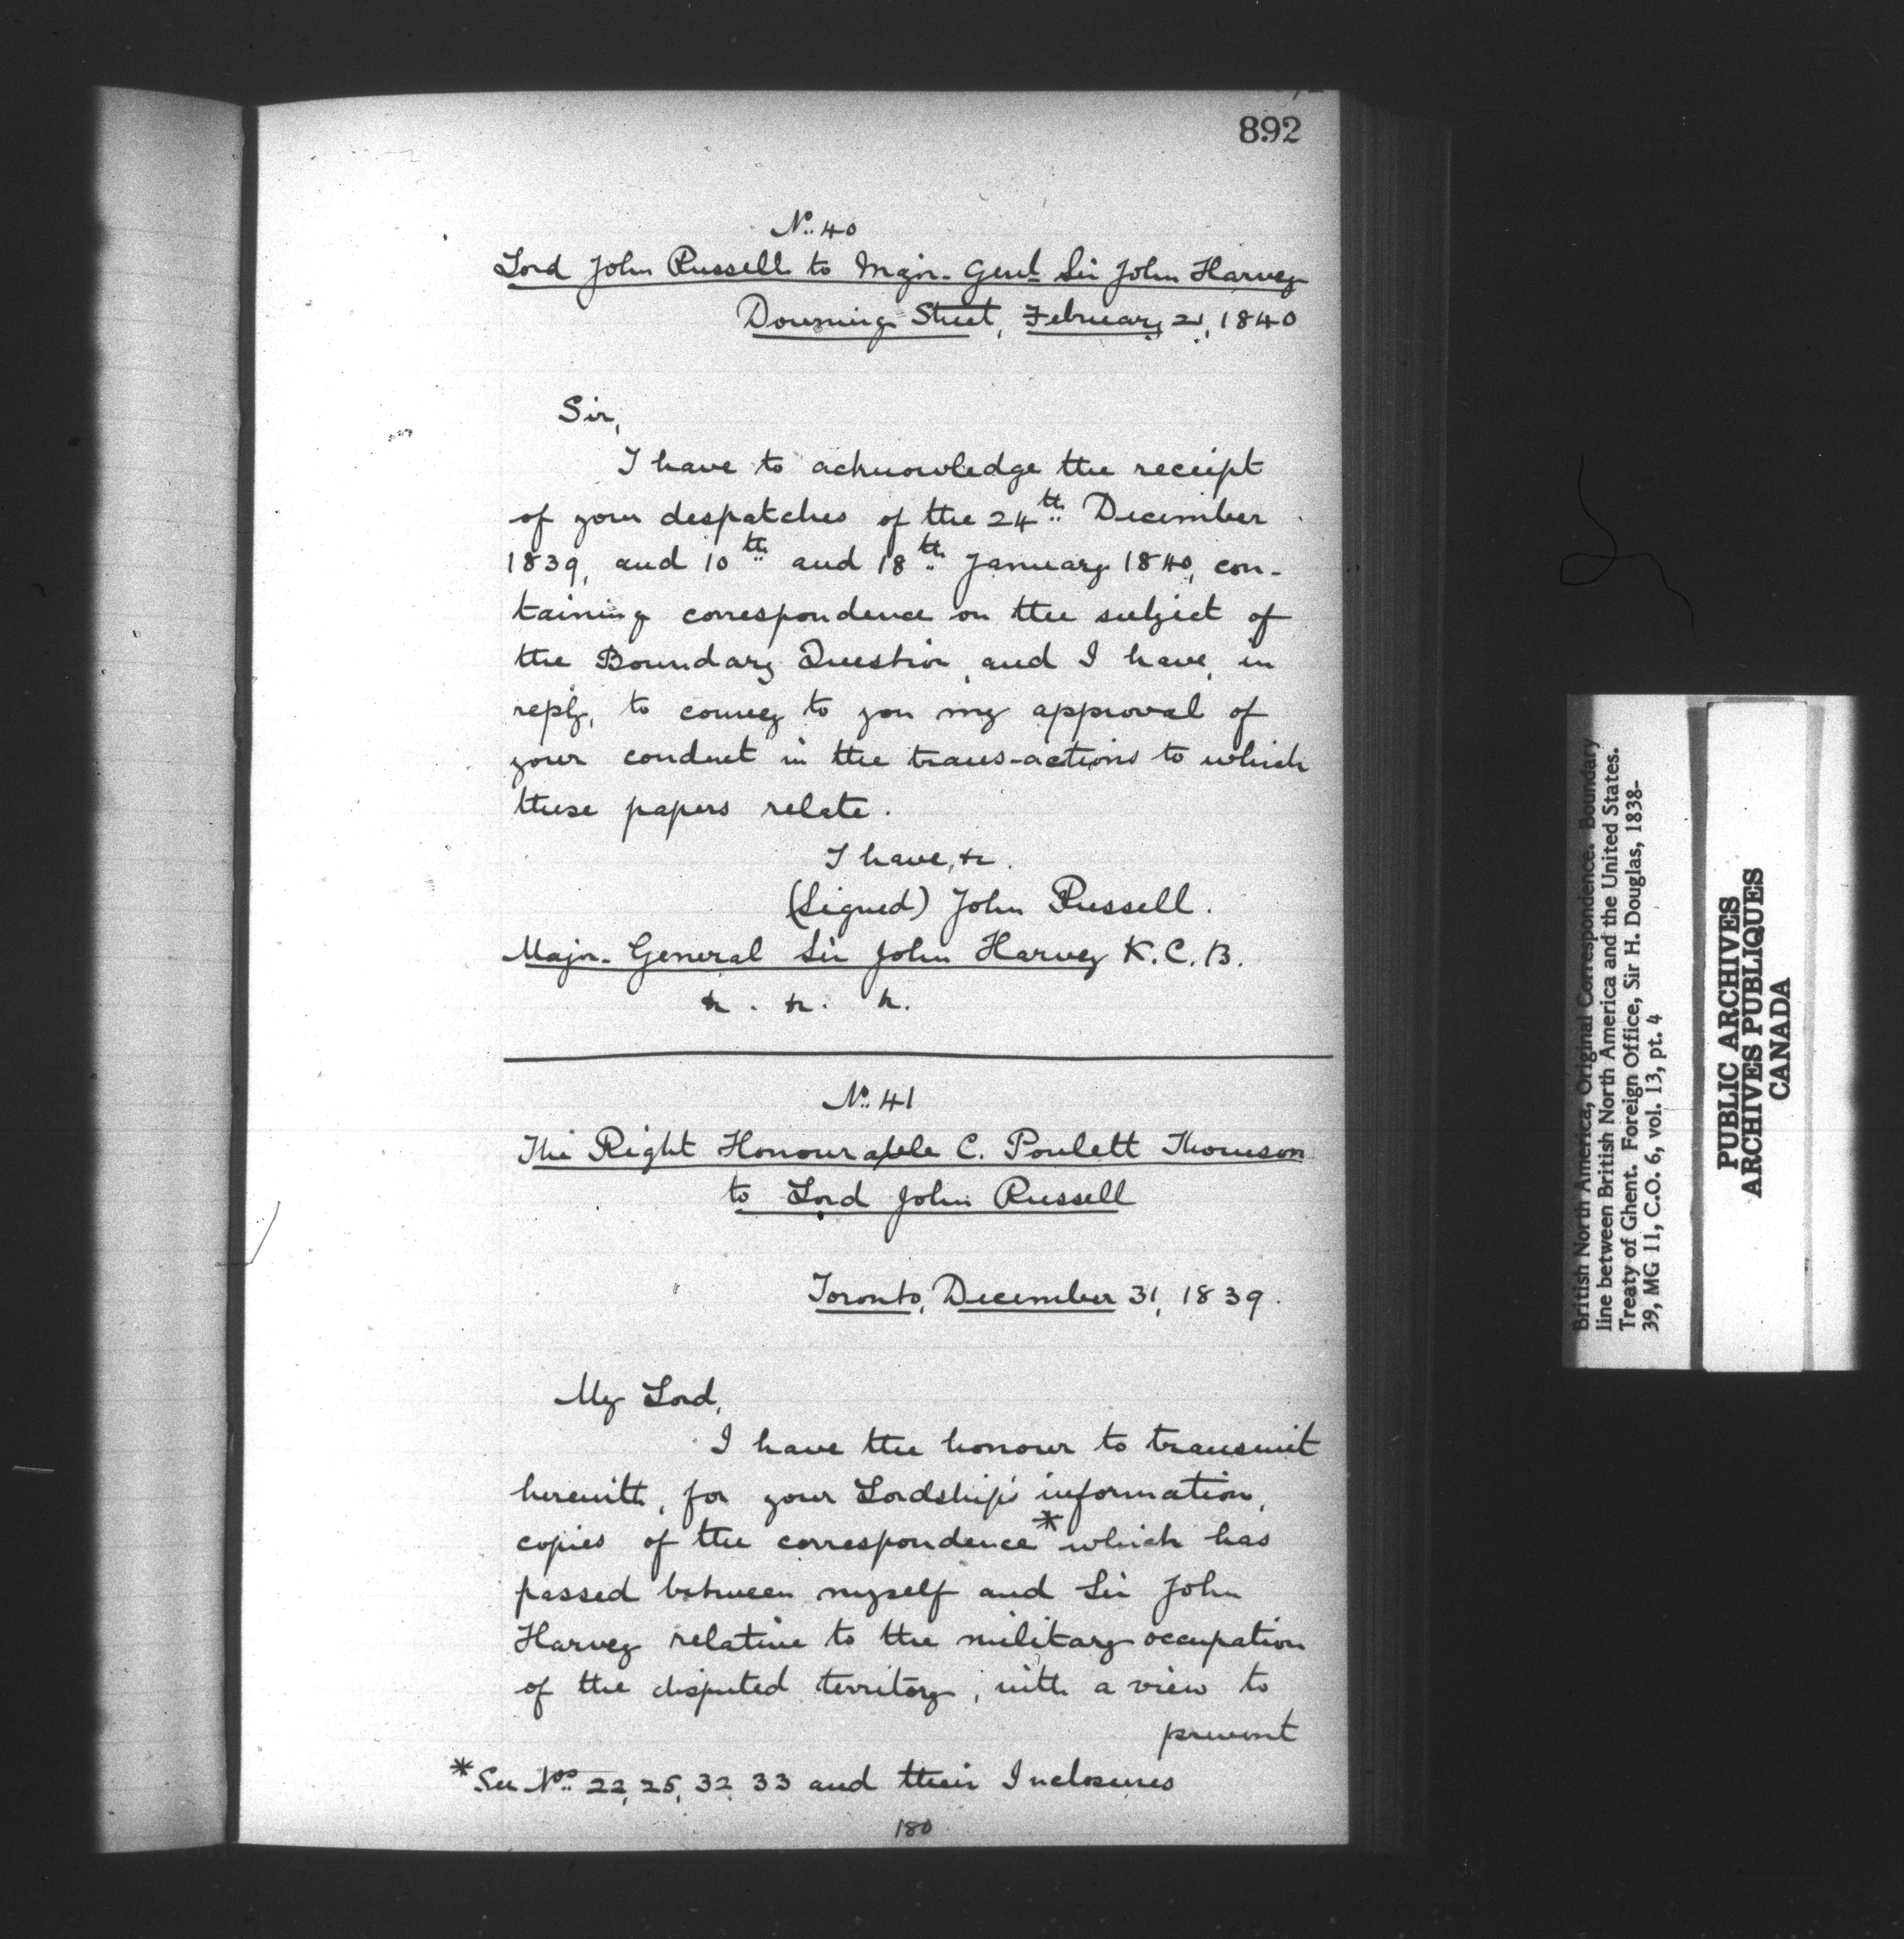 892
No. 40
Lord John Russell to Major-Genl Sir John Harvey
Downing Street, February 21, 1840
Sir,
I have to acknowledge the receipt
of your despatches of the 24th December
1839, and 10th and 18th January 1840, con-
taining correspondence on the subject of
the Boundary Question, and I have, in
reply, to convey to you my approval of
your conduct in the trans-actions to which
these papers relate.
I have, &c.
(Signed) John Russell.
Major-General Sir John Harvey K.C.B.
&c. &c. &c.
No. 41
The Right Honourable C. Poulett Thomson
to Lord John Russell
Toronto, December 31, 1839.
My Lord,
I have the honour to transmit
herewith, for your Lordship's information,
copies of the correspondence* which has
passed between myself and Sir John
Harvey relative to the military occupation
of the disputed territory, with a view to
prevent
*See Nos. 22, 25, 32, 33 and their Inclosures
180
British North America, Original Correspondence. Boundary
line between British North America and the United States.
Treaty of Ghent. Foreign Office, Sir H. Douglas, 1838-
39, MG 11, C.O. 6, vol. 13, pt. 4
PUBLIC ARCHIVES
ARCHIVES PUBLIQUES
CANADA